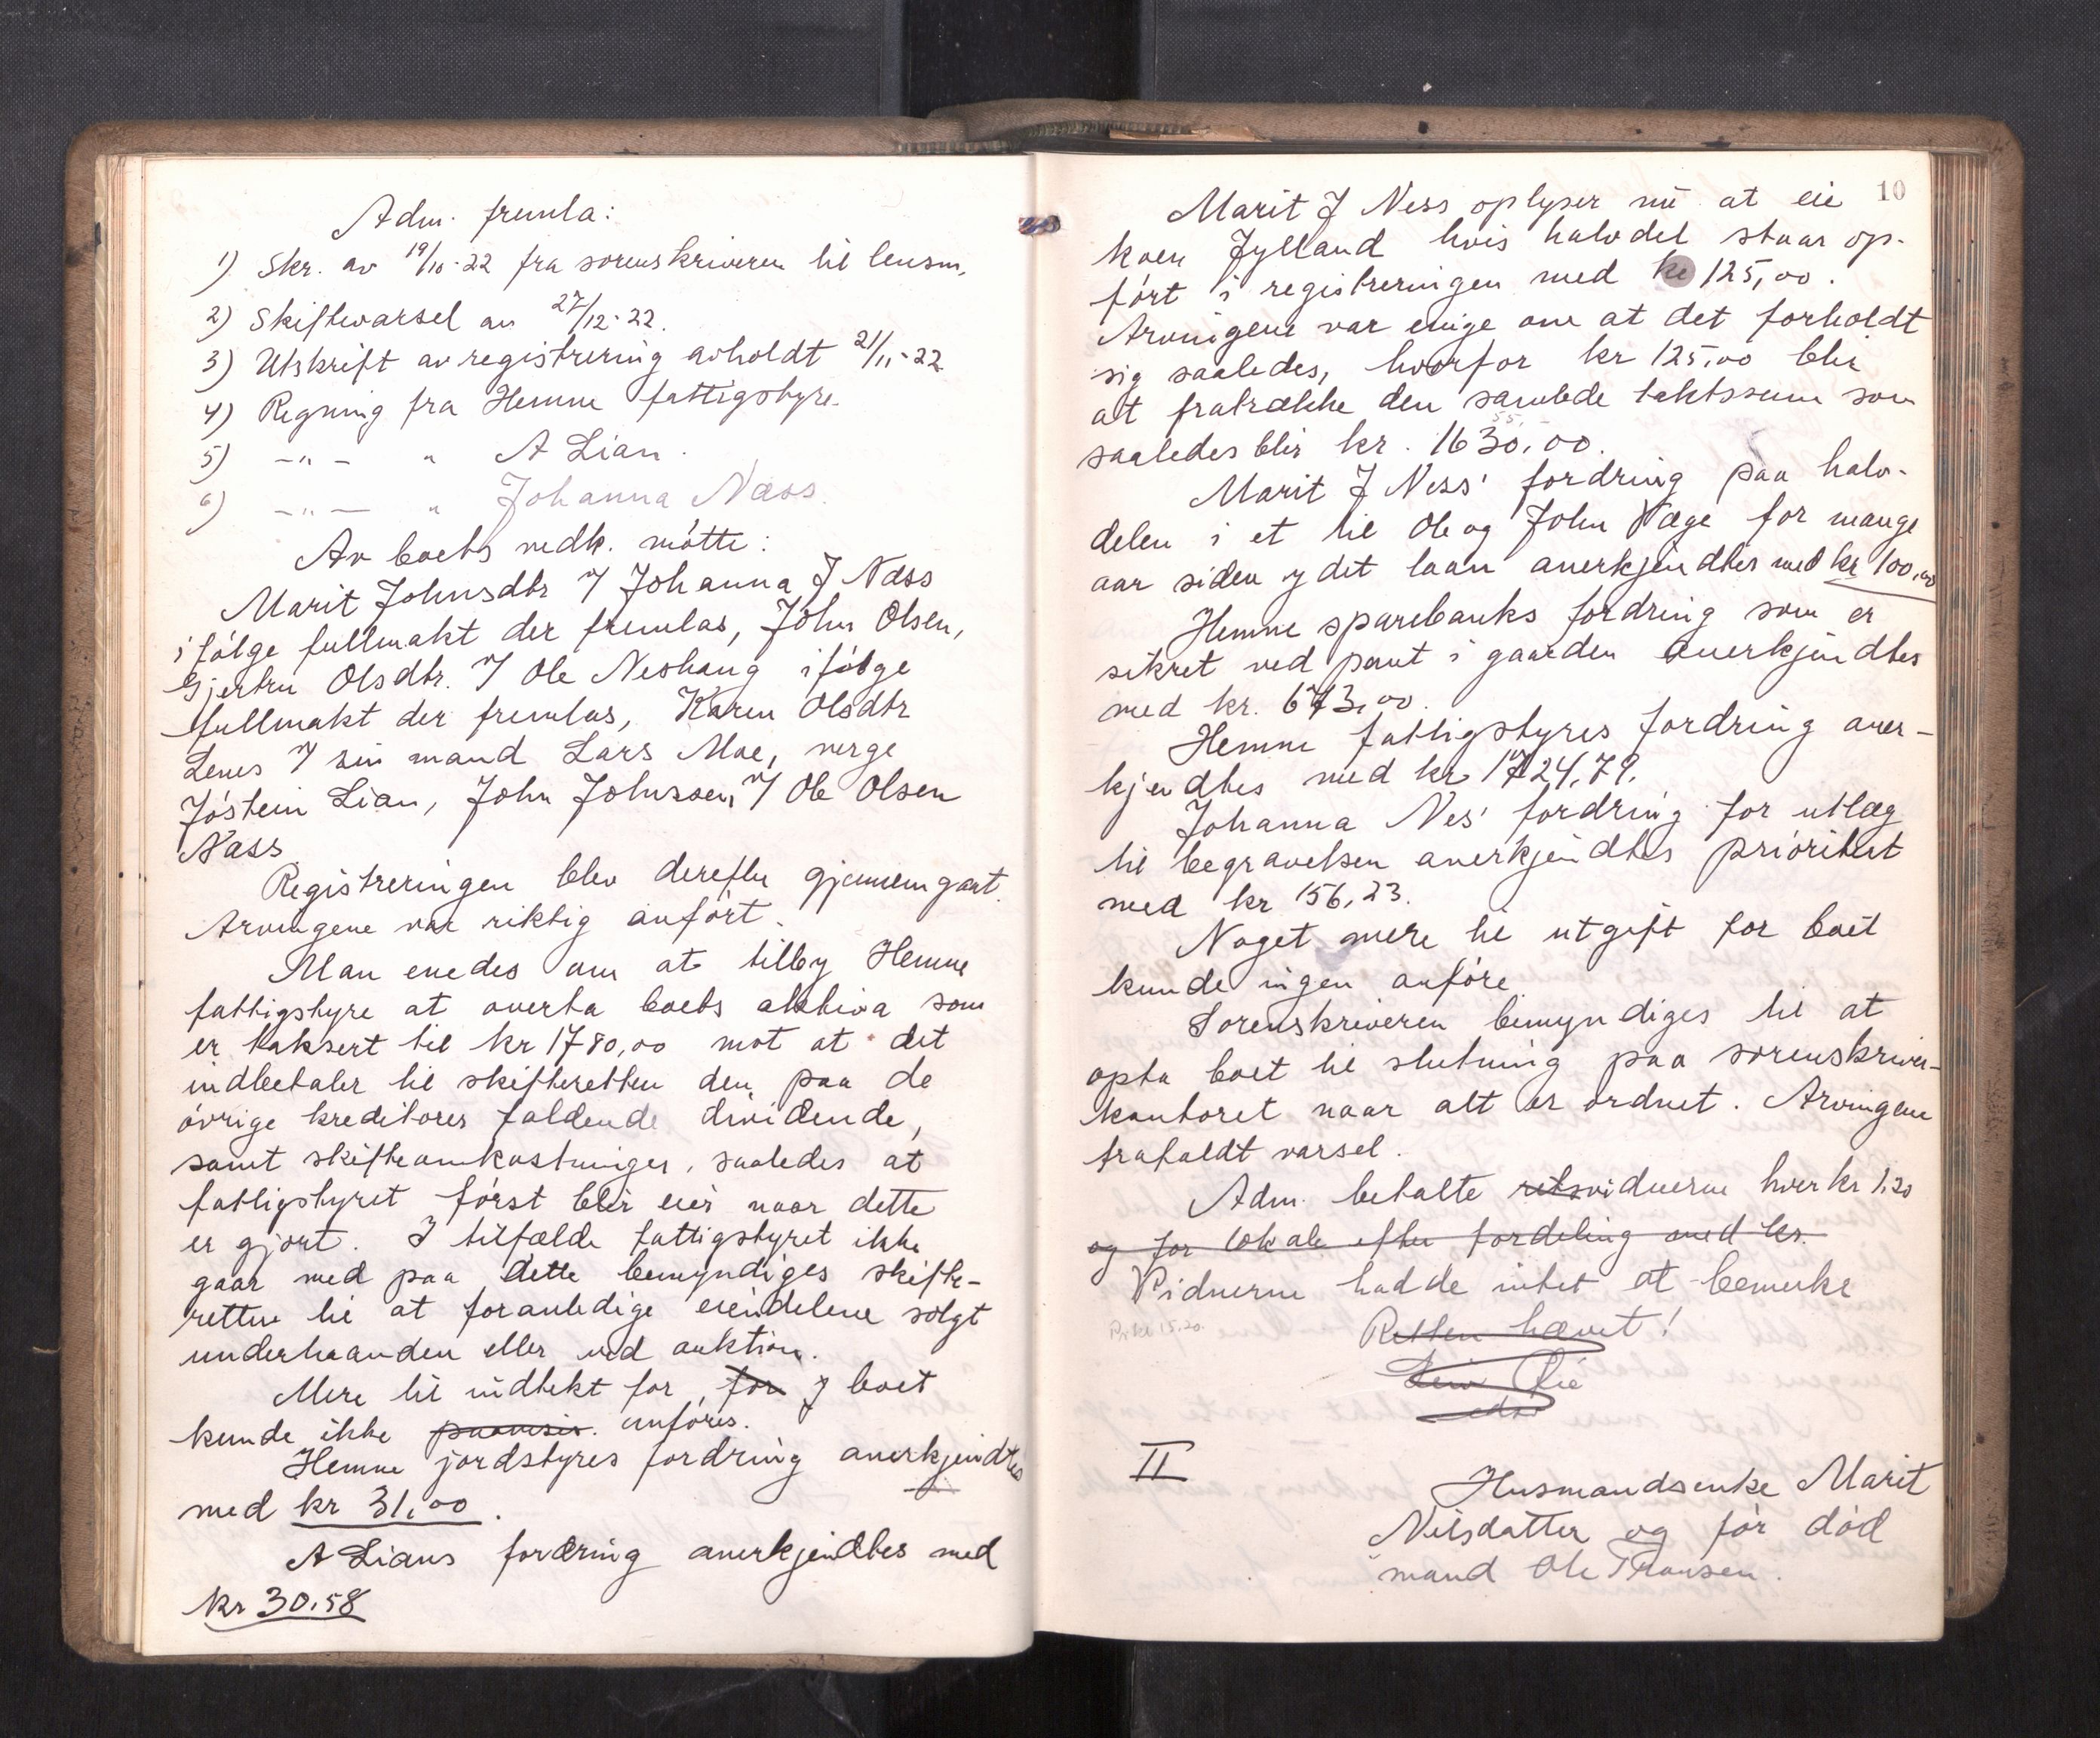 Adm. fremla:
1) Skr. av 19/10-22 fra sorenskriveren til lensm.
2) Skiftevarsel av 27/12-22.
3) Utskrift av registrering avholdt 21/11-22
4) Regning fra Hemne fattigstyre.
5) -"- " A Lian.
6) -"- " Johanna Næss.
Av boets vedk. møtte:
Marit Johnsdtr v/ Johanna J Næss
ifølge fullmakt der fremlas, John Olsen,
Gjertru Olsdtr. v/ Ole Neshaug ifølge
fullmakt der fremlas, Karen Olsdtr
Lenes v/ sin mand Lars Moe, verge
Jøstein Lian, John Johnssen, v/ Ole Olsen
Næss
Registreringen blev derefter gjennemgaat.
Arvingene var riktig anført.
Man enedes om at tilby Hemne
fattigstyre at overta boets aktiva som
er taksert til kr 1780,00 mot at det
indbetaler til skifteretten den paa de
øvrige kreditorer faldende dividende,
samt skifteomkostninger, saaledes at
fattigstyret først blir eier naar dette
er gjort. I tilfælde fattigstyret ikke
gaar med paa dette bemyndiges skifte-
retten til at foranledige eiendelene solgt
underhaanden eller ved auktion.
Mere til indtekt for for boet
kunde ikke paavises. anføres.
Hemne jordstyres fordring anerkjendtes
med kr 31,00.
A Lians fordring anerkjendtes med
kr 30.58
10
Marit J Ness oplyser nu at eie
koen Jylland hvis halvdel staar op-
ført i registreringen med kr 125,00.
Arvingene var enige om at det forholdt
sig saaledes, hvorfor kr 125,00 blir
at fratrække den samlede takstsum som
saaledes blir kr. 1630,00.
Marit J Ness' fordring paa halv-
delen i et til Ole og John Væge for mange
aar siden ydet laan anerkjendtes med kr 100,00
Hemne sparebanks fordring som er
sikret ved pant i gaarden anerkjendtes
med kr. 673,00.
Hemne fattigstyres fordring aner-
kjendtes med kr 1724,79.
Johanna Nes' fordring for utlæg
til begravelsen anerkjendtes prioritert
med kr 156,23.
Noget mere til utgift for boet
kunde ingen anføre
Sorenskriveren bemyndiges til at
opta boet til slutning paa sorenskriver-
kontoret naar alt er ordnet. Arvingene
frafaldt varsel.
Adm. betalte retsvidnerne hver kr 1.20
og for lokale efter fordeling med kr.
Vidnerne hadde intet at bemerke
Retten hævet!
II
Husmandsenke Marit
Nilsdatter og før død
mand Ole Tronsen.